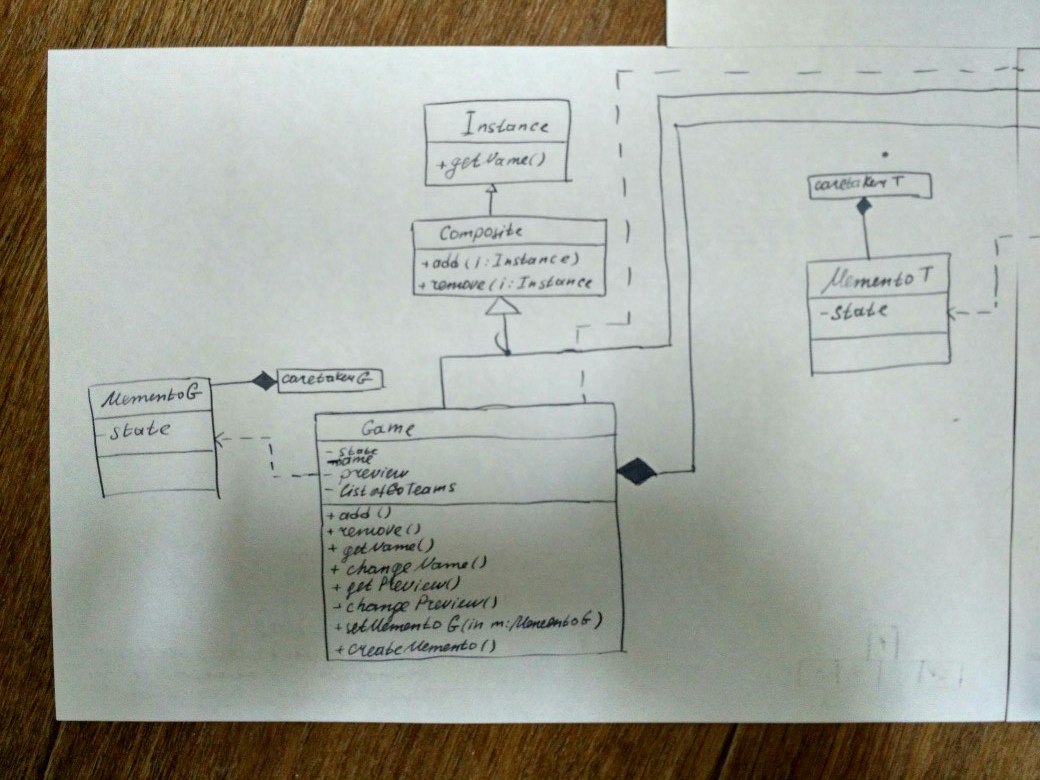 Instance
+getName()
Composite
+add(i:Instance)
+remove(i:Instance
caretakerT
MementoT
-state
caretakerG
MementoG
-state
Game
- state
- name
- preview
- listofGoTeams
+add()
+remove()
+getName()
+changeName()
+getPreview()
+changePreview()
+setMementoG(in m:MementoG)
+createMemento()